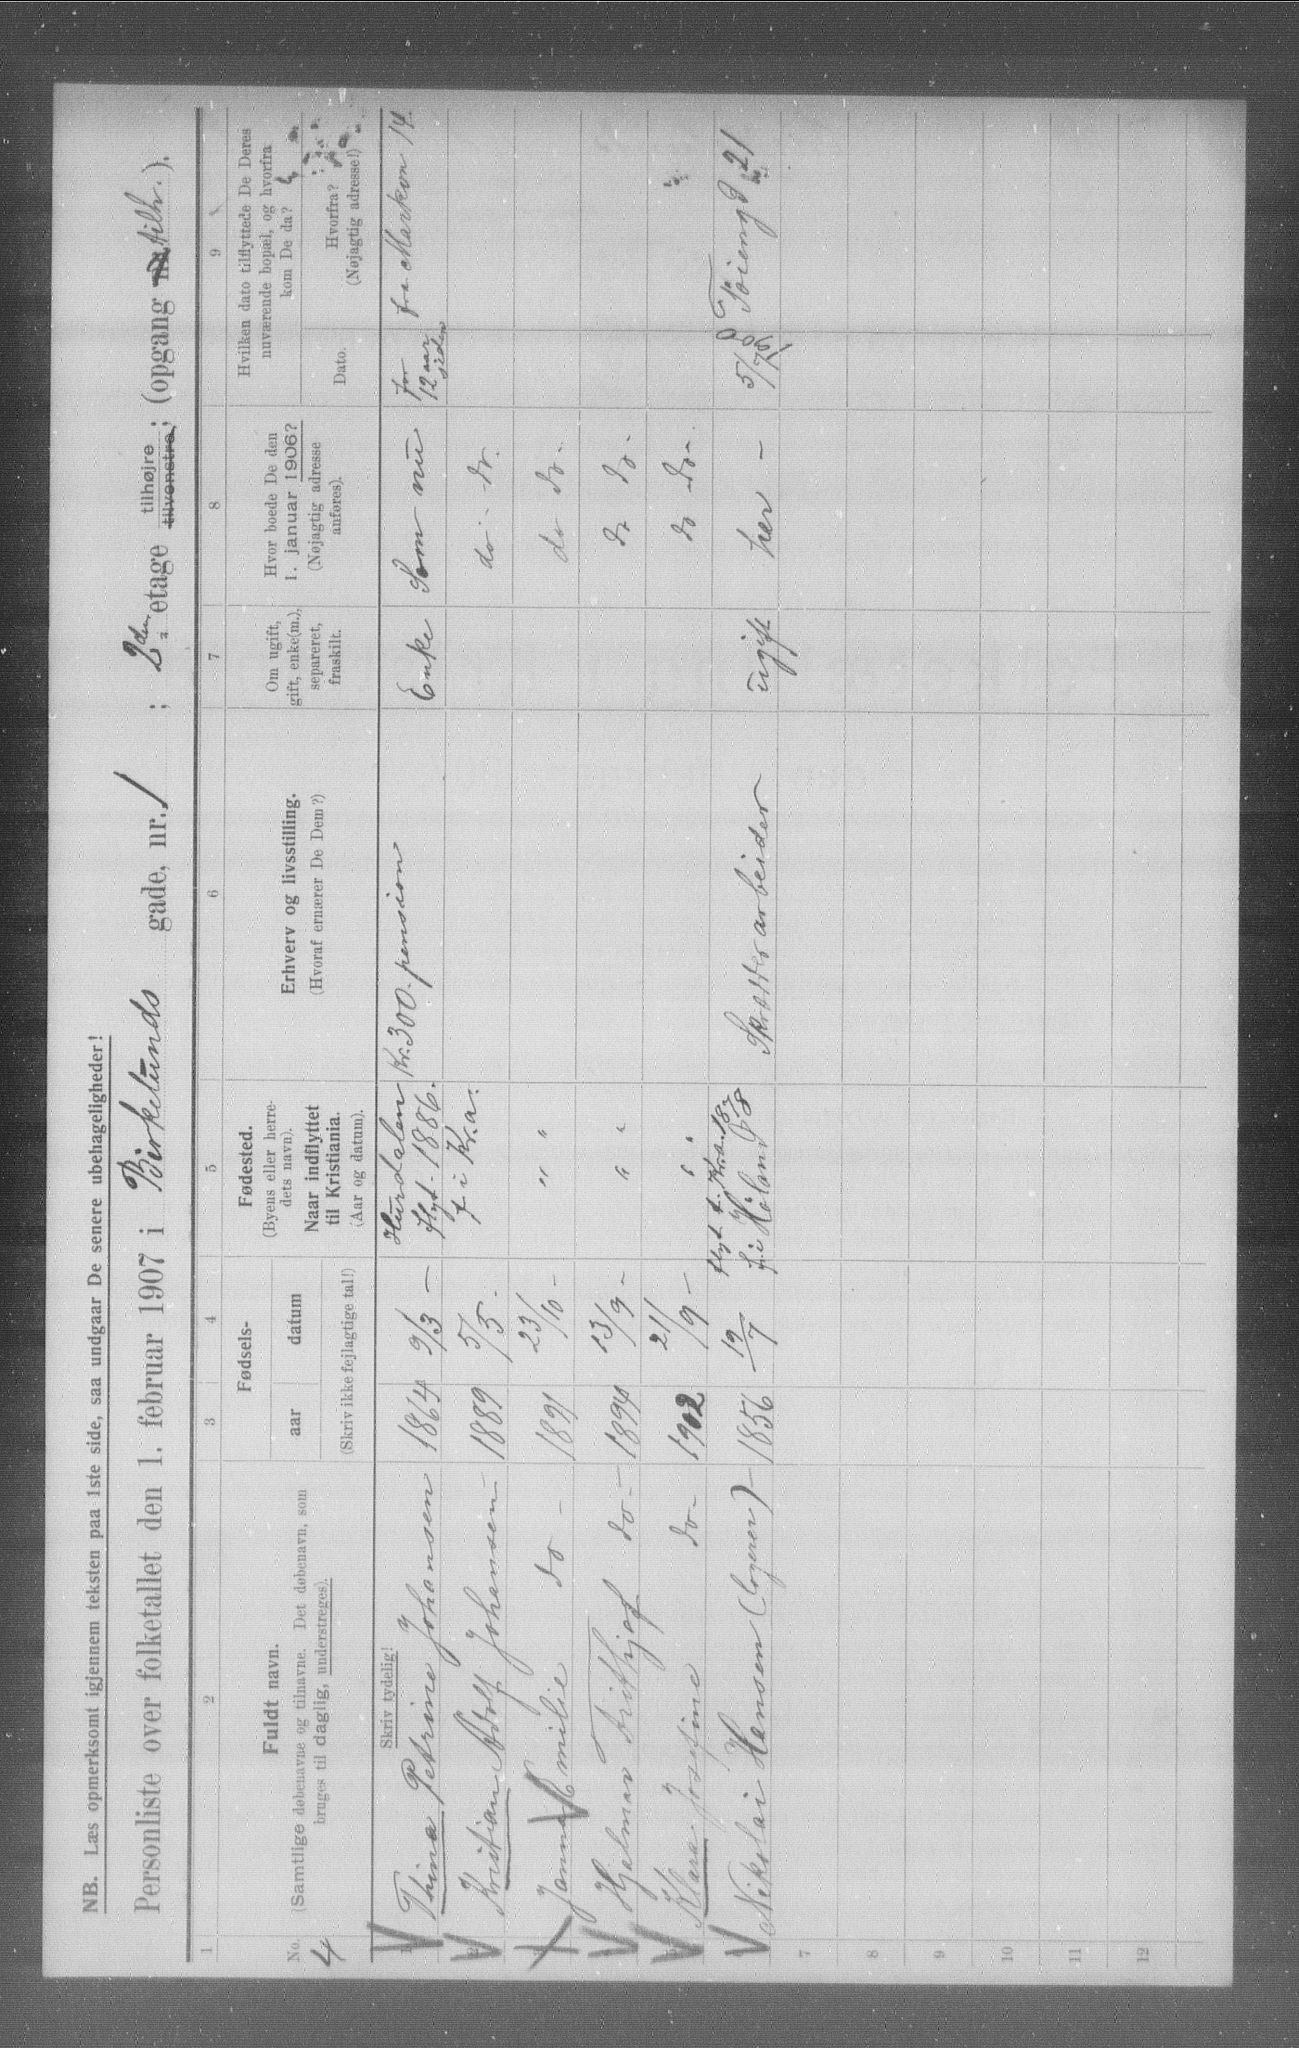 NB. Læs opmerksomt igjennem teksten paa 1ste side, saa undgaar De senere ubehageligheder!
Personliste over folketallet den 1. februar 1907 i Birkelunds gade, nr. 1 ; 2den etage tilhøjre tilvenstre; (opgang tilh.).
1 2 3 4 5 6 7 8 9
No. 4
Fuldt navn.
(Samtlige døbenavne og tilnavne. Det døbenavn, som
bruges til daglig, understreges).
Skriv tydelig!
Fødsels-
aar datum
(Skriv ikke fejlagtige tal!)
Fødested.
(Byens eller herre-
dets navn).
Naar indflyttet
til Kristiania.
(Aar og datum).
Erhverv og livsstilling.
(Hvoraf ernærer De Dem?)
Om ugift,
gift, enke(m.),
separeret,
fraskilt.
Hvor boede De den
1. januar 1906?
(Nøjagtig adresse
anføres).
Hvilken dato tilflyttede De Deres
nuværende bopæl, og hvorfra
kom De da?
Dato.
Hvorfra?
(Nøjagtig adresse!)
1 Thina Petrine Johansen 1864 9/3 – Hurdalen flyt. 1886. Kr. 300. pension Enke Som nu for 12 aar siden fra Markvn 14.
2 Kristian Adolf Johansen 1889 5/5 - f i Kr.a. do - do.
Janna Emilie do – 1891 23/10 - " " do do -
Hjalmar Frithjof do - 1894 13/9 - " " do do -
Klara Josefine do - 1902 21/9 – " " do do -
Nikolai Hansen (logerer) – 1856 19/7 flyt t. Kr.a. 1878 f. i Høland Skrædderarbeider ugift her - 5/7 Tøiengd 21
7
8
9
10
11
12